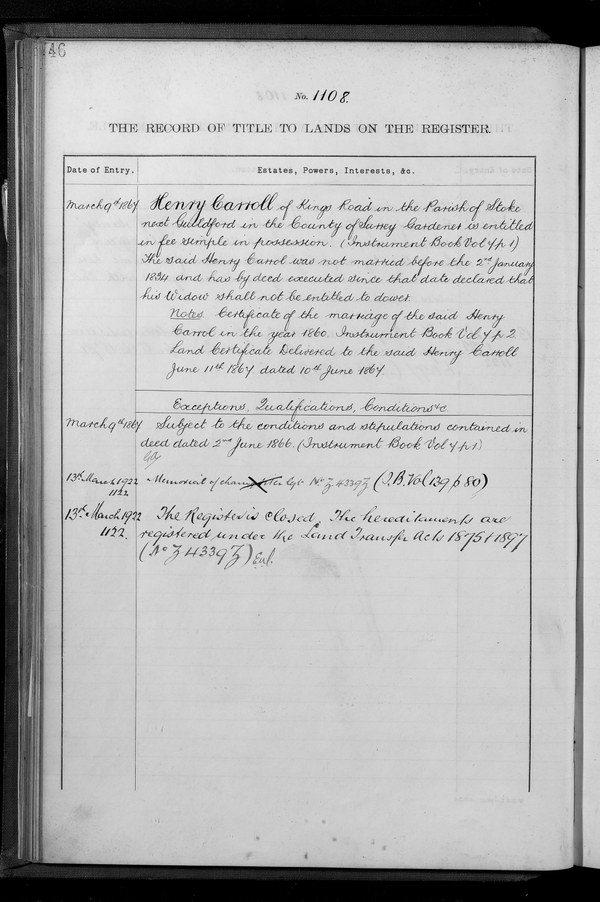 46
No. 1108.
THE RECORD OF TITLE TO LANDS ON THE REGISTER.
Date of Entry. Estates, Powers, Interests, &c.
March 9th 1867 Henry Carroll of Kings Road in the Parish of Stoke
next Guildford in the County of Surrey Gardener is entitled
in fee simple in possession. (Instrument Book Vol 4 p 1)
The said Henry Carrol was not married before the 2nd January
1834 and has by deed executed since that date declared that
his Widow shall not be entitled to dower
Notes Certificate of the marriage of the said Henry
Carrol in the year 1860. Instrument Book Vol 4 p 2
Land Certificate Delivered to the said Henry Carroll
June 11th 1867 dated 10th June 1867.
Exceptions, Qualifications, Conditions &c
March 9th 1867 Subject to the conditions and stipulations contained in
deed dated 2nd June 1866. (Instrument Book Vol 4 p 1)
13th March 1922 Memorial of No Z 4339 Z (I.B. Vol 139 p 80)
1122
13th March 1922 The Register is closed. The hereditaments are
1122. registered under the Land Transfer Acts 1875 & 1897
(No Z 4339 Z)